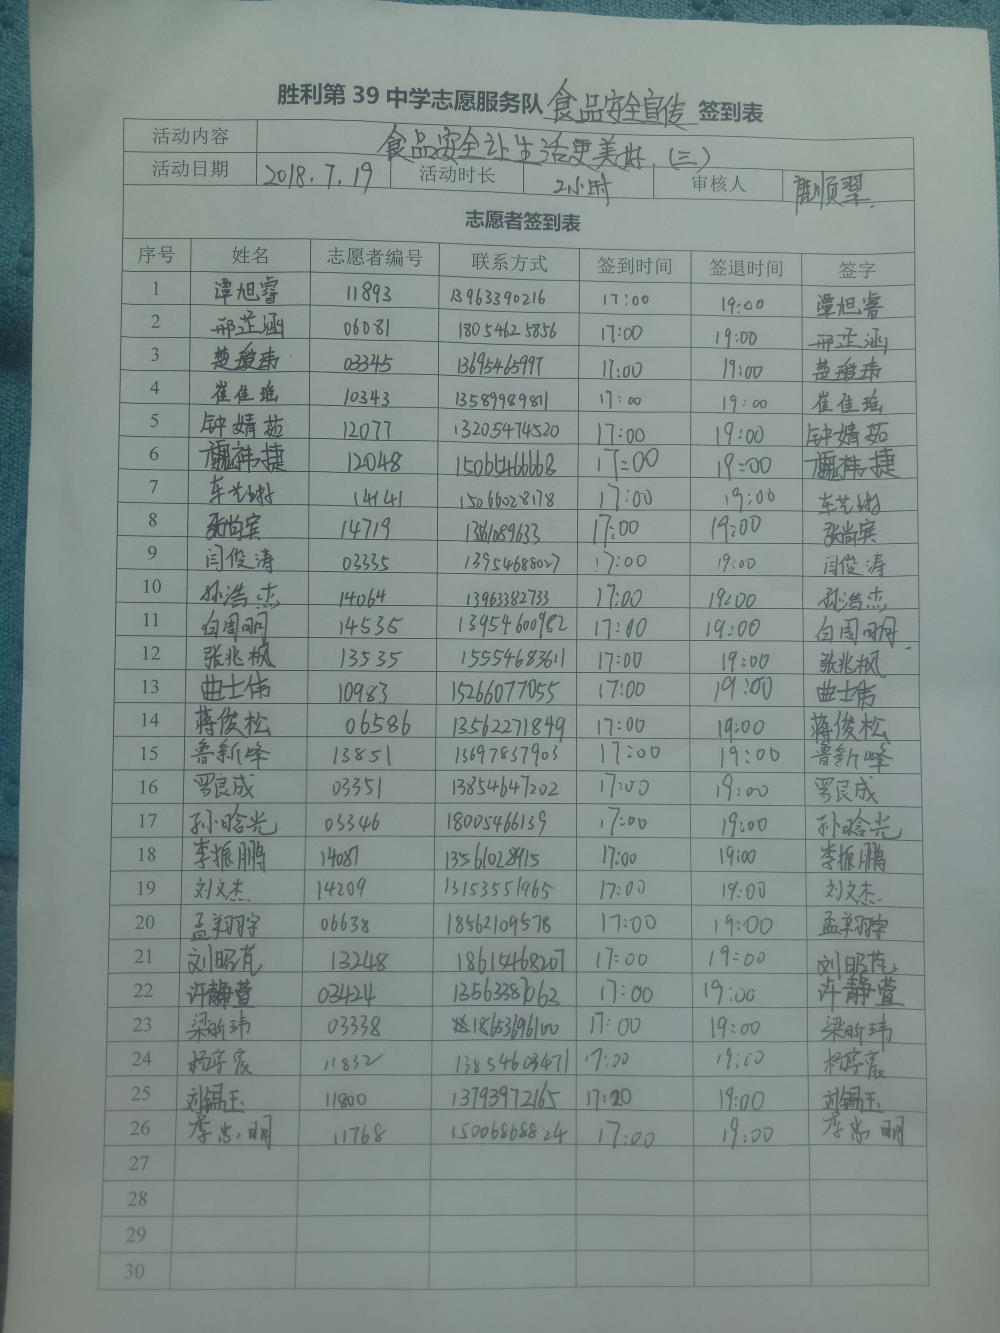 胜利第 39 中学志愿服务队 食品安全宣传 签到表
活动内容 食品安全让生活更美好.(三)
活动日期 2018.7.19 活动时长 2小时 审核人
志愿者签到表
序号 姓名 志愿者编号 联系方式 签到时间 签退时间 签字
1 谭旭睿 11893 13963390216 17:00 19:00 谭旭睿
2 邢芷涵 06081 18054625856 17:00 19:00 邢芷涵
3 楚瑷玮 03345 13695465997 17:00 19:00 楚瑷玮
4 崔佳瑶 10343 13589989811 17:00 19:00 崔佳瑶
5 钟婧茹 12077 13205474520 17:00 19:00 钟婧茹
6 12048 15065466668 17:00 19:00
7 14141 15066028178 17:00 19:00
8 张尚宾 14719 1356089633 17:00 19:00 张尚宾
9 闫俊涛 03335 13954688027 17:00 19:00 闫俊涛
10 孙浩杰 14064 13963382733 17:00 19:00 孙浩杰
11 白周明 14535 13954600982 17:00 19:00 白周明
12 张兆枫 13535 15554683611 17:00 19:00 张兆枫
13 曲士伟 10983 15266077055 17:00 19:00 曲士伟
14 蒋俊松 06586 13562271849 17:00 19:00 蒋俊松
15 鲁新峰 13851 13697837903 17:00 19:00 鲁新峰
16 罗良成 03351 13854647202 17:00 19:00 罗良成
17 孙晗光 03346 18005466139 17:00 19:00 孙晗光
18 李振鹏 14087 13561028915 17:00 19:00 李振鹏
19 刘文杰 14209 13153551965 17:00 19:00 刘文杰
20 孟翔宇 06638 18562109578 17:00 19:00 孟翔宇
21 刘昭芃 13248 18615468207 17:00 19:00 刘昭芃
22 许静萱 03424 13563387063 17:00 19:00 许静萱
23 梁昕玮 03338 18653696100 17:00 19:00 梁昕玮
24 杨宇宸 11832 13854603471 17:00 19:00 杨宇宸
25 刘锡玉 11800 13793972165 17:20 19:00 刘锡玉
26 李忠明 11768 15006868824 17:00 19:00 李忠明
27
28
29
30